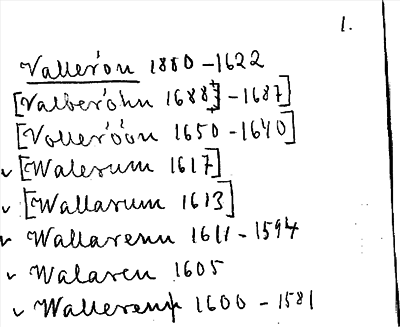 1.
Vallerön 1880 - 1622
[Valberöhn 1688] - 1687]
[Volleröön 1650 - 1640]
v [Walerum 1617]
v [Wallarum 1613]
v Wallarenn 1611 - 1594
v Walaren 1605
v Walleren 1600 - 1581